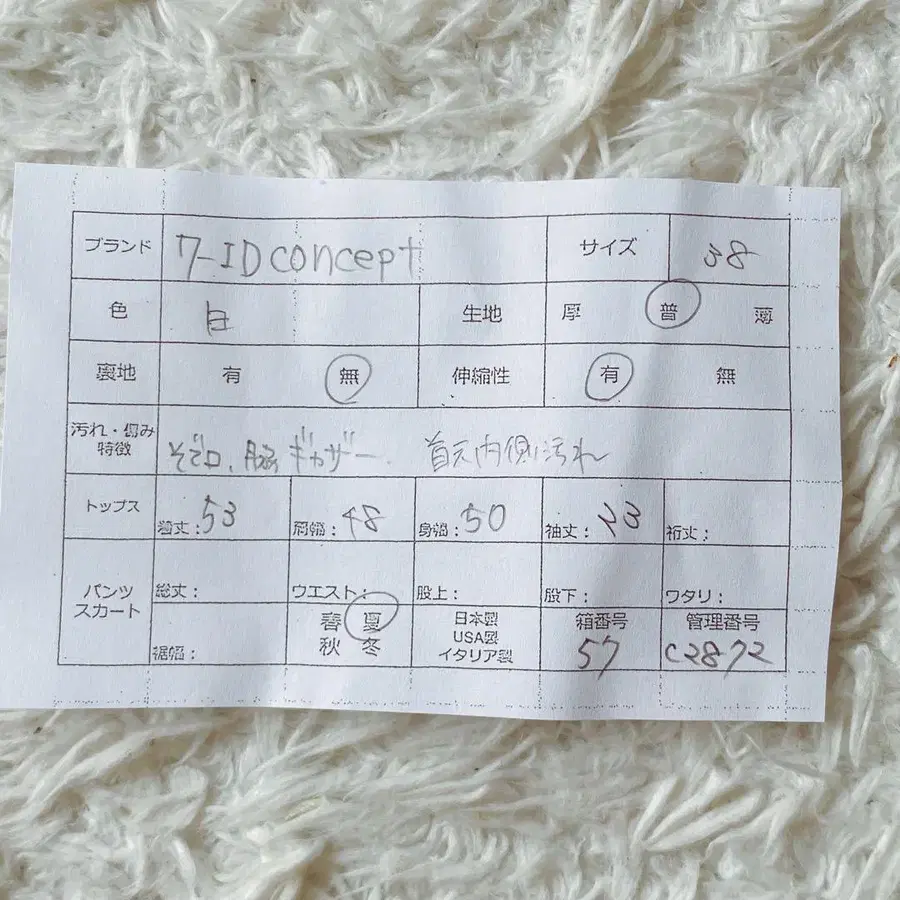 ブランド 7-IDconcept サイズ 38
色 白 生地 厚 普 薄
裏地 有 無 伸縮性 有 無
汚れ・傷み
特徴
そで口、脇ギャザー 首元内側汚れ
トップス 着丈:53 肩幅:48 身幅:50 袖丈:23 裄丈:
パンツ
スカート
総丈: ウエスト: 股上: 股下: ワタリ:
裾幅:
春 夏
秋 冬
日本製
USA製
イタリア製
箱番号
57
管理番号
C2872